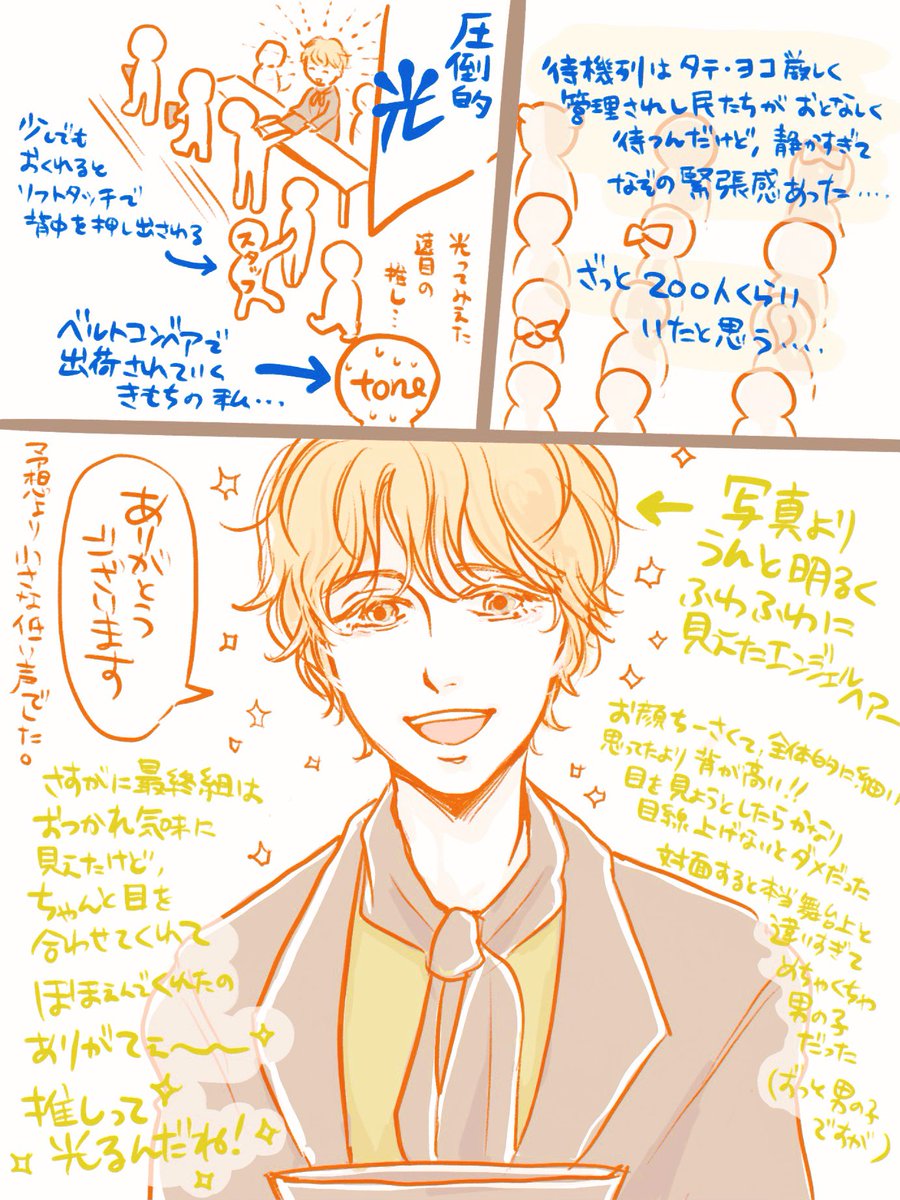 待機列はタテ・ヨコ厳しく
管理されし民たちがおとなしく
待つんだけど、静かすぎて
なぞの緊張感あった….
ざっと200人くらい
いたと思う….
圧倒的
光
少しでも
おくれると
ソフトタッチで
背中を押し出される
スタッフ
光ってみえた
遠目の
推し…
ベルトコンベアで
出荷されていく
きもちの私…
tone
写真より
うんと明るく
ふわふわに
見えたエンジェルヘアー
ありがとう
ございます
マア想より小さな低い声でした。
お顔ちーさくて、全体的に細い
思ってたより背が高い!!
目を見ようとしたらかなり
目線上げないとダメだった
対面すると本当舞台上と
違いすぎて
めちゃくちゃ
男の子
だった
(ずっと男の子
ですが)
さすがに最終組は
おつかれ気味に
見えたけど、
ちゃんと目を
合わせてくれて
ほほえんでくれたの
ありがてぇ〜〜
推しって
光るんだね!